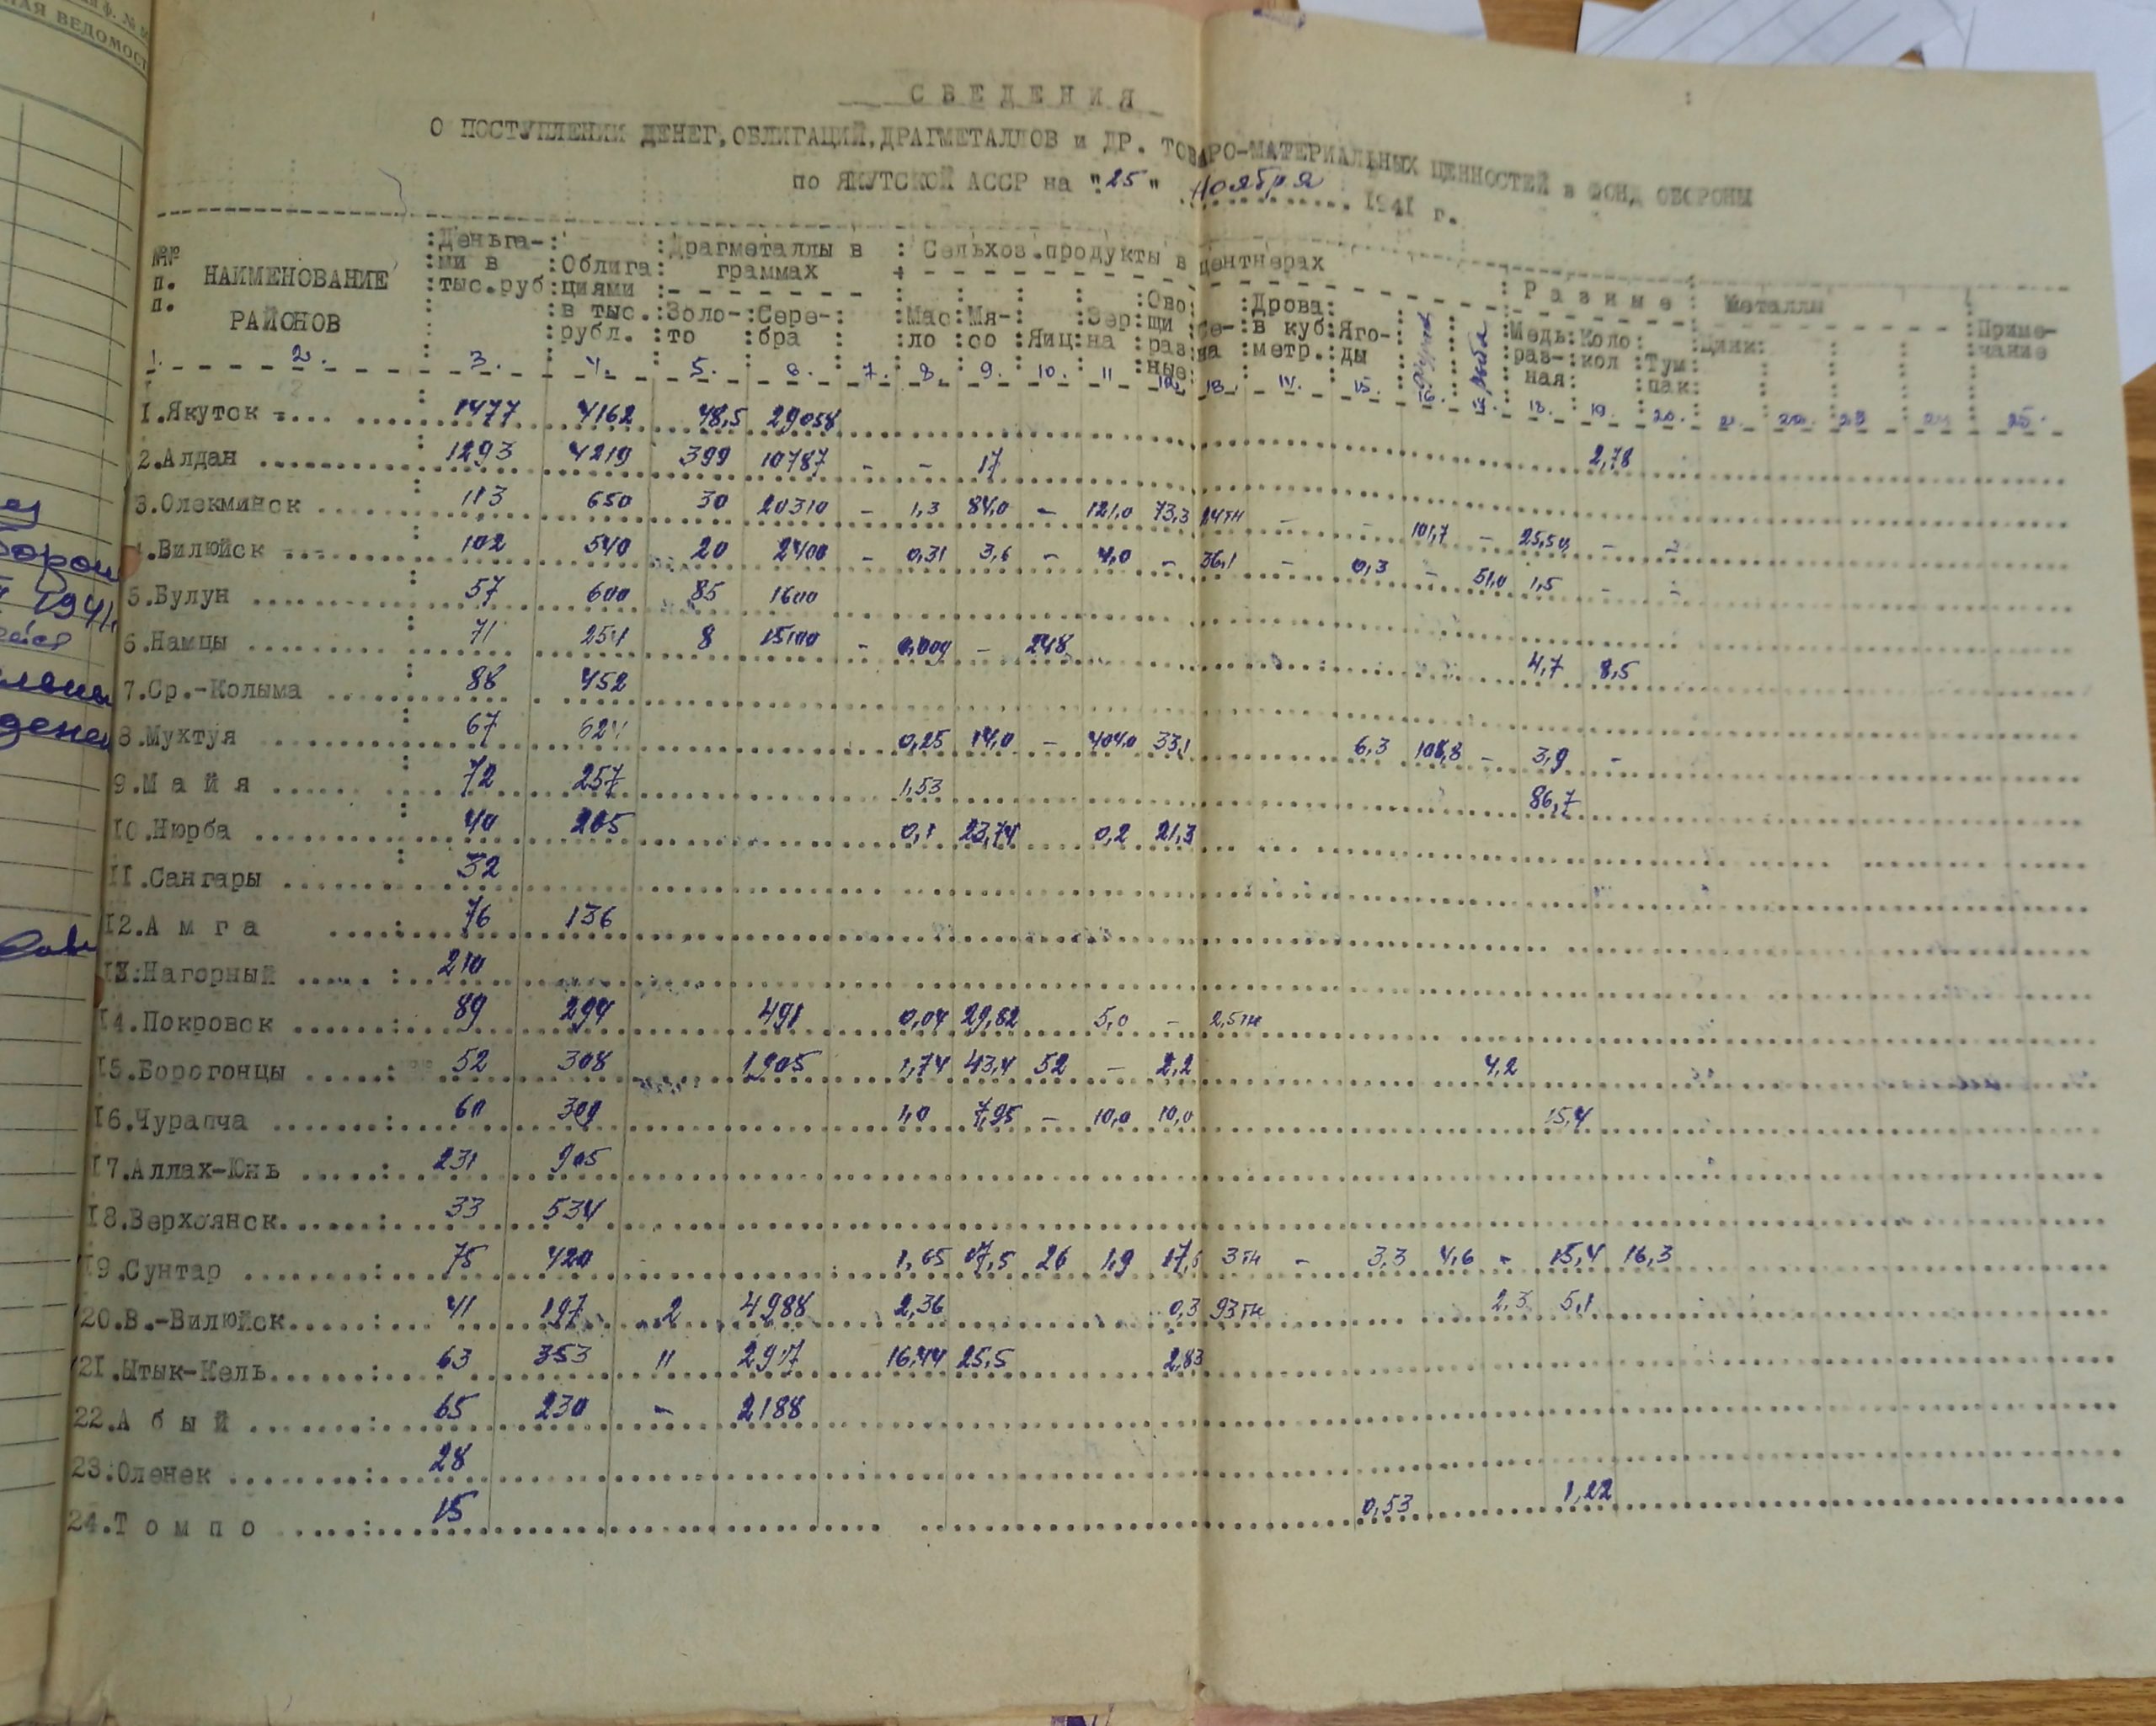 СВЕДЕНИЯ
О ПОСТУПЛЕНИИ ДЕНЕГ, ОБЛИГАЦИЙ, ДРАГМЕТАЛЛОВ и ДР. ТОВАРО-МАТЕРИАЛЬНЫХ ЦЕННОСТЕЙ в ФОНД ОБОРОНЫ
по ЯКУТСКОЙ АССР на "25" Ноября 1941 г.
№№ п. п. НАИМЕНОВАНИЕ РАЙОНОВ
Деньга-
ми в
тыс.руб
Облига
циями
в тыс.
рубл.
Драгметаллы в
граммах
Золо-
то
Сере-
бра
Сельхоз.продукты в центнерах
Мас
ло
Мя-
со
Яиц
Зер
на
Ово
щи
раз
ные
Се-
на
Дрова
в куб
метр.
Яго-
ды
рыба
Разные Металлы
Медь
раз-
ная
Коло
кол
Тум
пак
Цинк
Приме-
чание
1. 2. 3. 4. 5. 6. 7. 8. 9. 10. 11 12. 13. 14. 15. 16. 18. 19. 20. 21. 22. 23 24 25.
1.Якутск 1477 4162 48,5 29058 2,78
2.Алдан 1293 4219 399 10787 - - 17
3.Олекминск 113 650 30 20310 - 1,3 84,0 - 121,0 73,3 - - 101,7 - 25,50 - -
4.Вилюйск 102 540 20 2400 - 0,31 3,6 - 4,0 - 36,1 - 0,3 - 51,0 1,5 - -
5.Булун 57 600 85 1600
6.Намцы 71 254 8 15100 - 0,009 - 248 4,7 8,5
7.Ср.-Колыма 88 452
8.Мухтуя 67 624 0,25 14,0 - 404,0 33,1 6,3 108,8 - 3,9 -
9.Майя 72 257 1,53 86,7
10.Нюрба 40 205 0,1 23,74 0,2 21,3
11.Сангары 32
12.Амга 76 136
13.Нагорный 210
14.Покровск 89 294 491 0,04 29,82 5,0 - 2,5тн
15.Борогонцы 52 308 1905 1,74 43,4 52 - 2,2 4,2
16.Чурапча 60 309 1,0 7,95 - 10,0 10,0 15,4
17.Аллах-Юнь 231 905
18.Верхоянск 33 534
19.Сунтар 75 420 1,65 17,5 26 1,9 3тн - 3,3 4,6 - 15,4 16,3
20.В.-Вилюйск 41 197 2 4988 2,36 0,3 93тн 2,3 5,1
21.Ытык-Кель 63 353 11 2917 16,44 25,5 2,83
22.Абый 65 230 - 2188
23.Оленек 28
24.Томпо 15 0,53 1,22